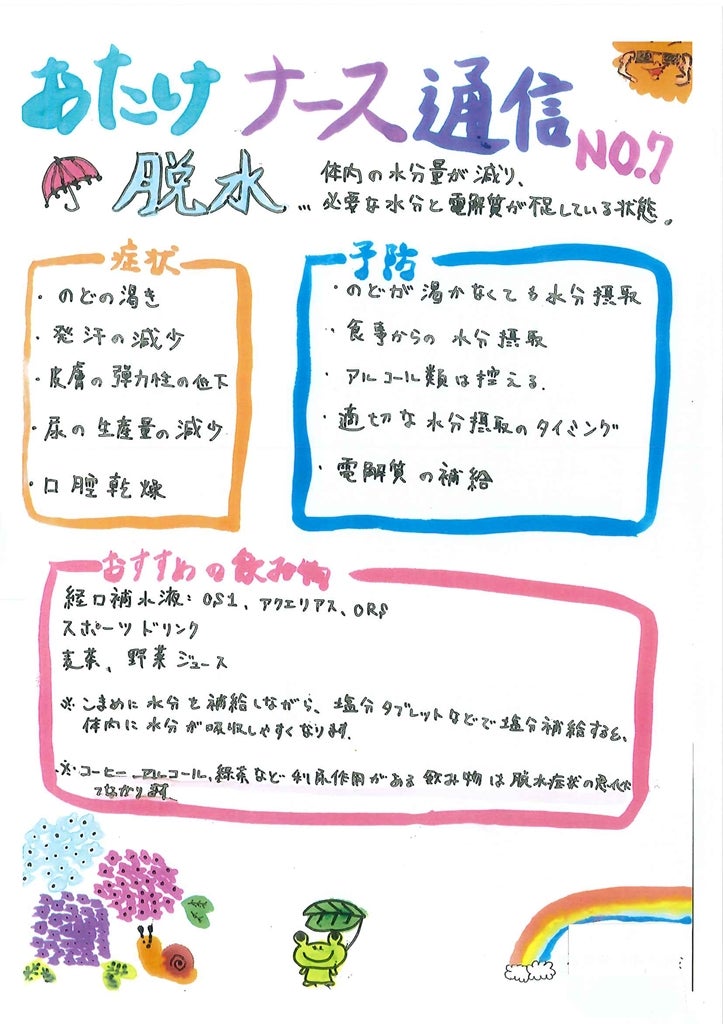 おたけ ナース通信 NO.7
脱水 … 体内の水分量が減り、
必要な水分と電解質が不足している状態。
症状
・のどの渇き
・発汗の減少
・皮膚の弾力性の低下
・尿の生産量の減少
・口腔乾燥
予防
・のどが渇かなくても水分摂取
・食事からの水分摂取
・アルコール類は控える。
・適切な水分摂取のタイミング
・電解質の補給
おすすめの飲み物
経口補水液:OS1、アクエリアス、ORS
スポーツドリンク
麦茶、野菜ジュース
※こまめに水分を補給しながら、塩分タブレットなどで塩分補給すると、
体内に水分が吸収しやすくなります。
※コーヒー、アルコール、緑茶など利尿作用がある飲み物は脱水症状の悪化に
つながります。